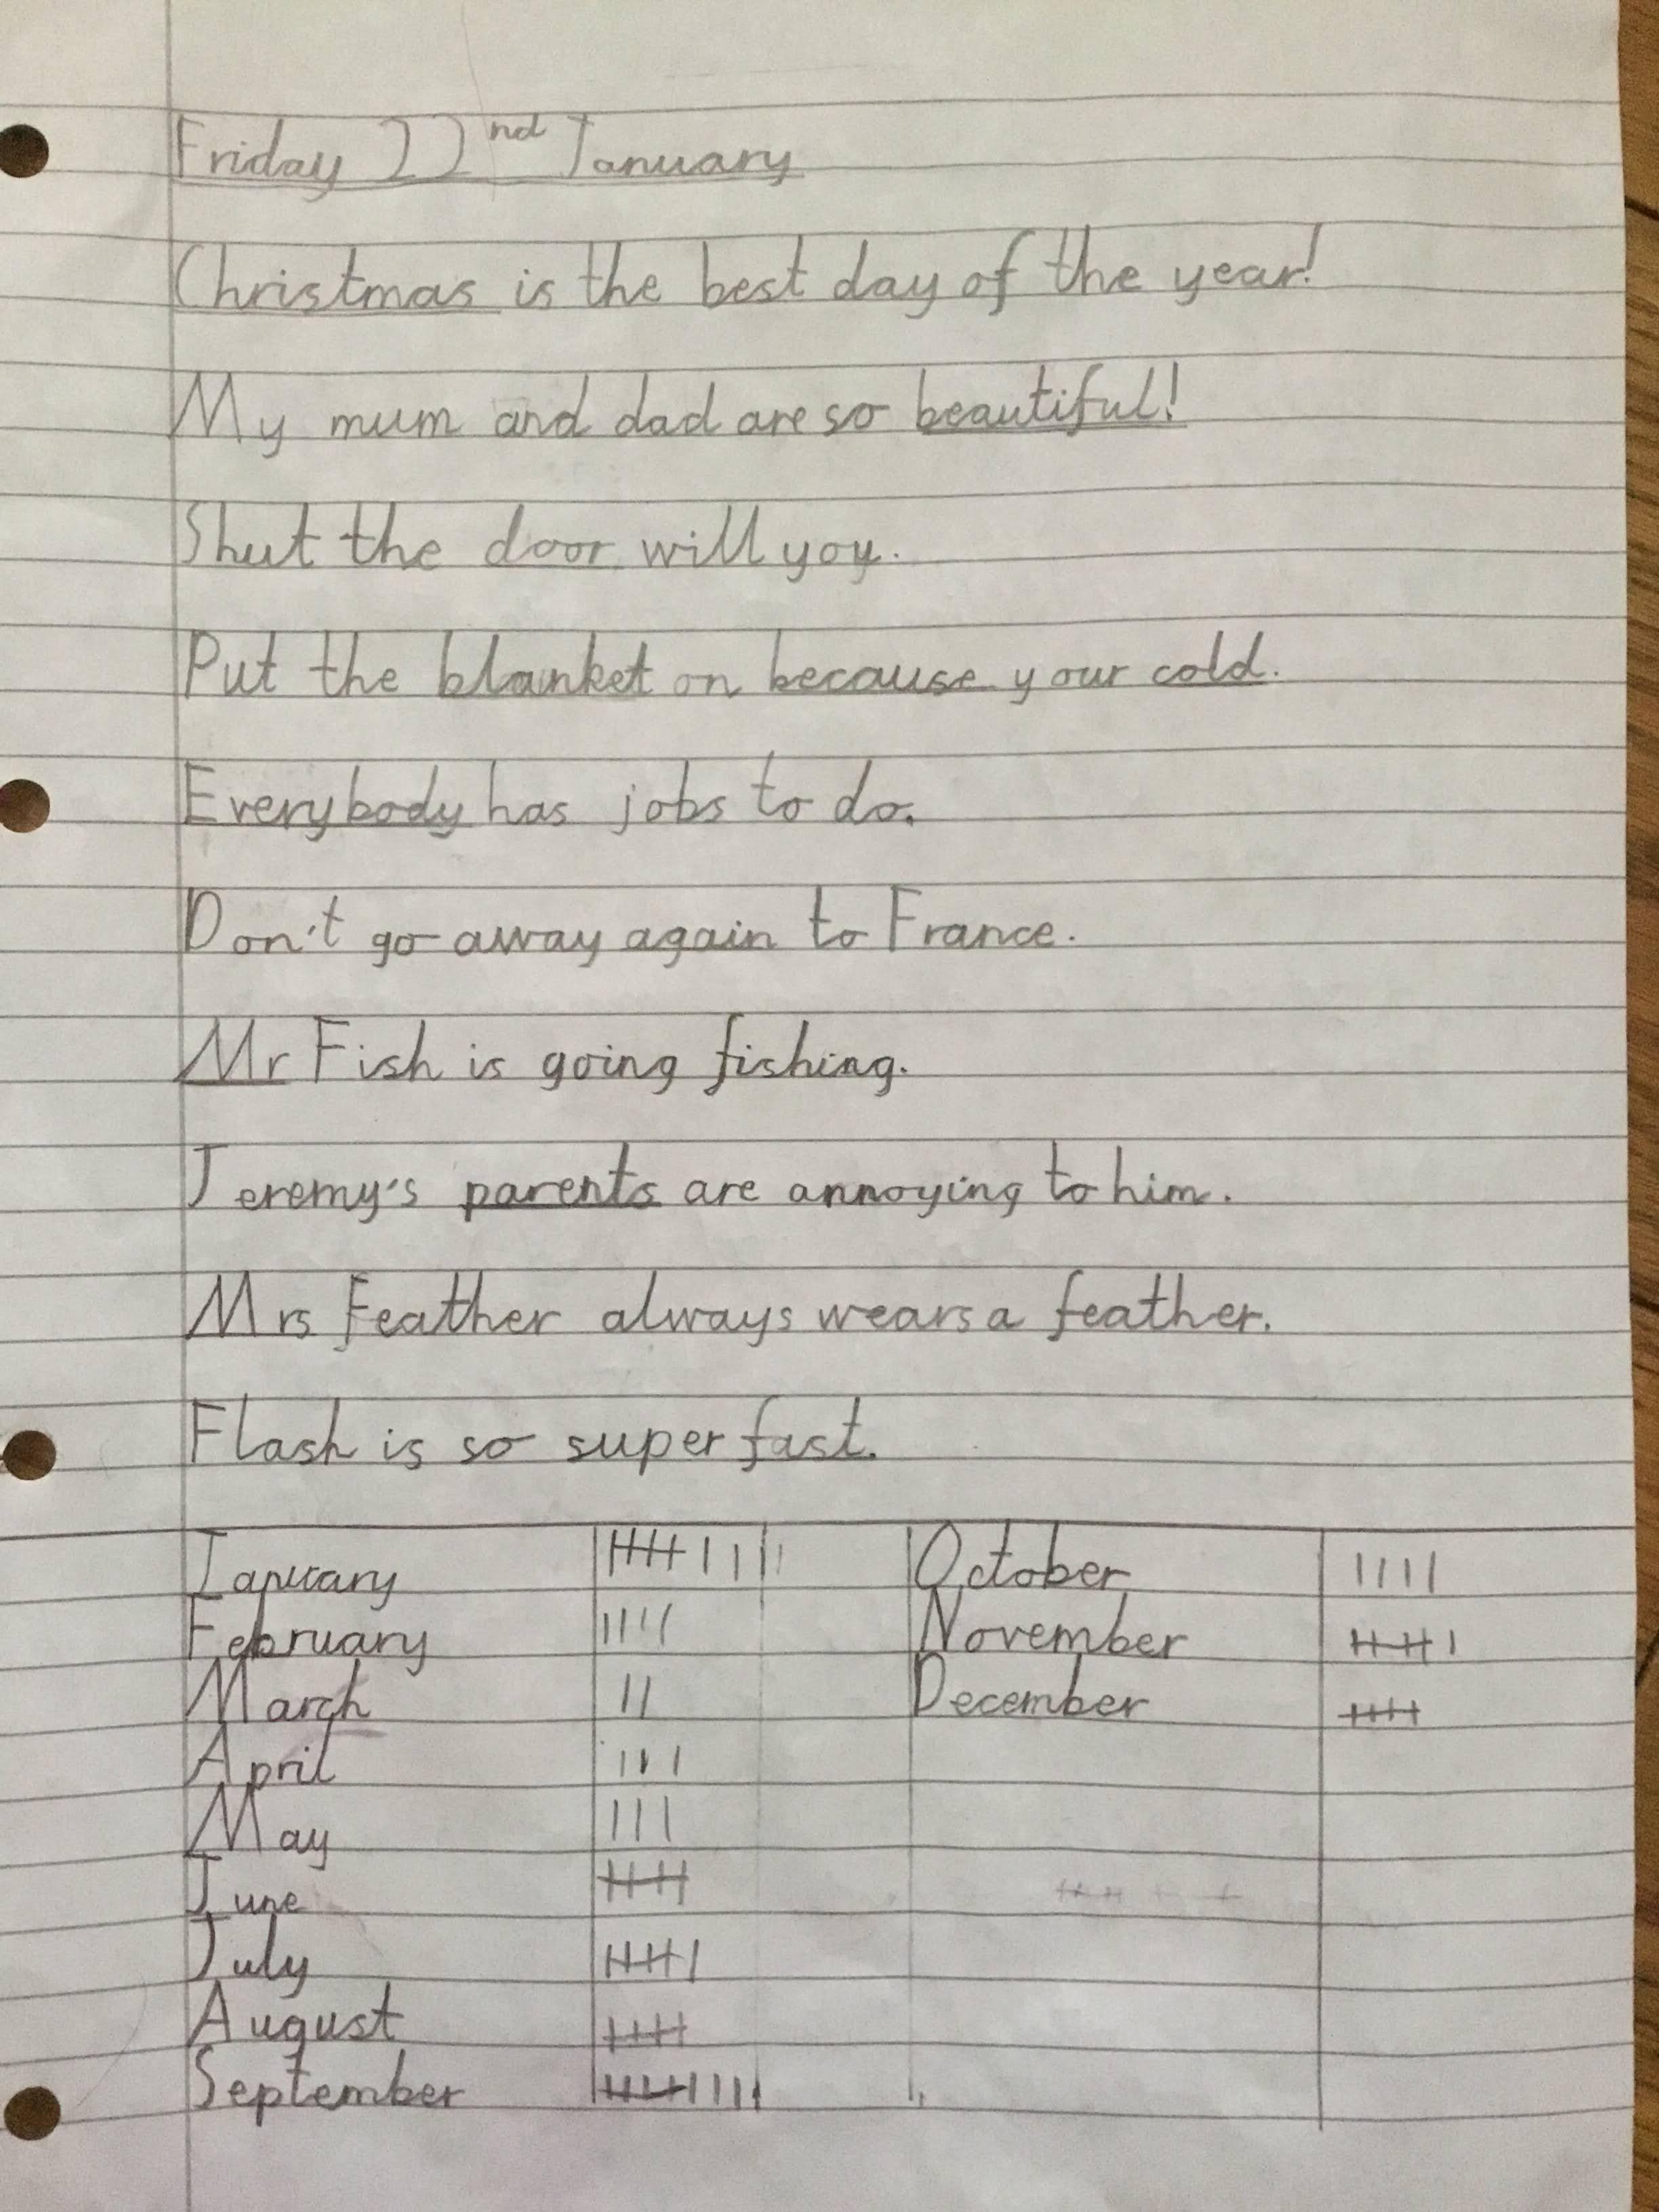 Friday 22nd January
Christmas is the best day of the year!
My mum and dad are so beautiful!
Shut the door will you.
Put the blanket on because your cold.
Everybody has jobs to do.
Don't go away again to France.
Mr Fish is going fishing.
Jeremy's parents are annoying to him.
Mrs Feather always wears a feather.
Flash is so super fast.
January October
February November
March December
April
May
June
July
August
September